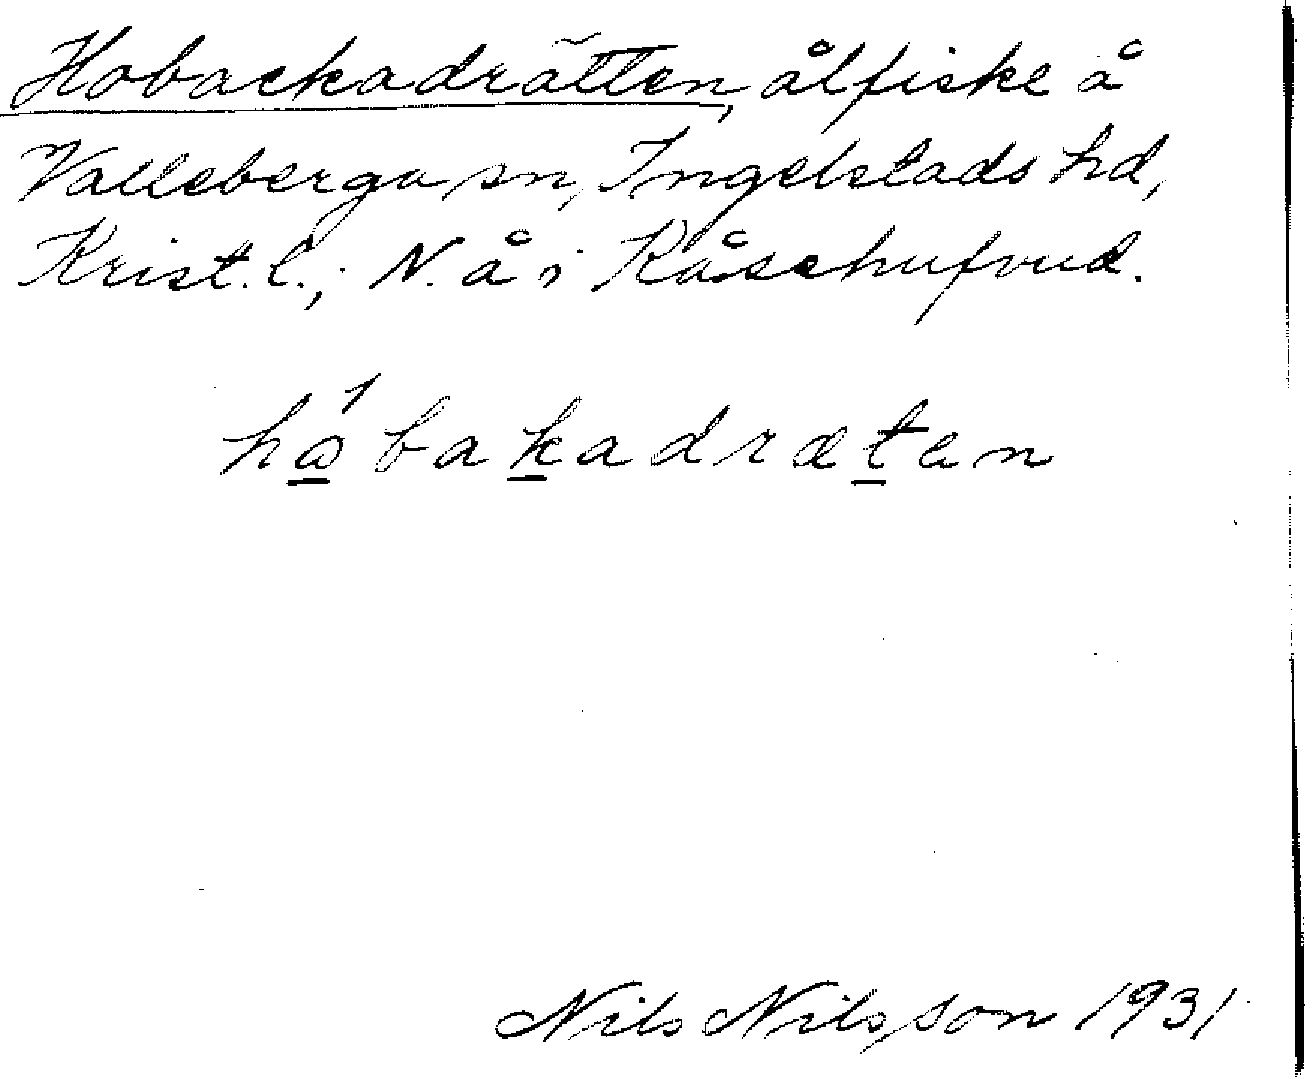 Hobackadrätten, ålfiske å
Valleberga sn, Ingelstads hd,
Krist. l.; N. å i Kåsehufvud.
hǻbakadrætan
Nils Nilsson 1931